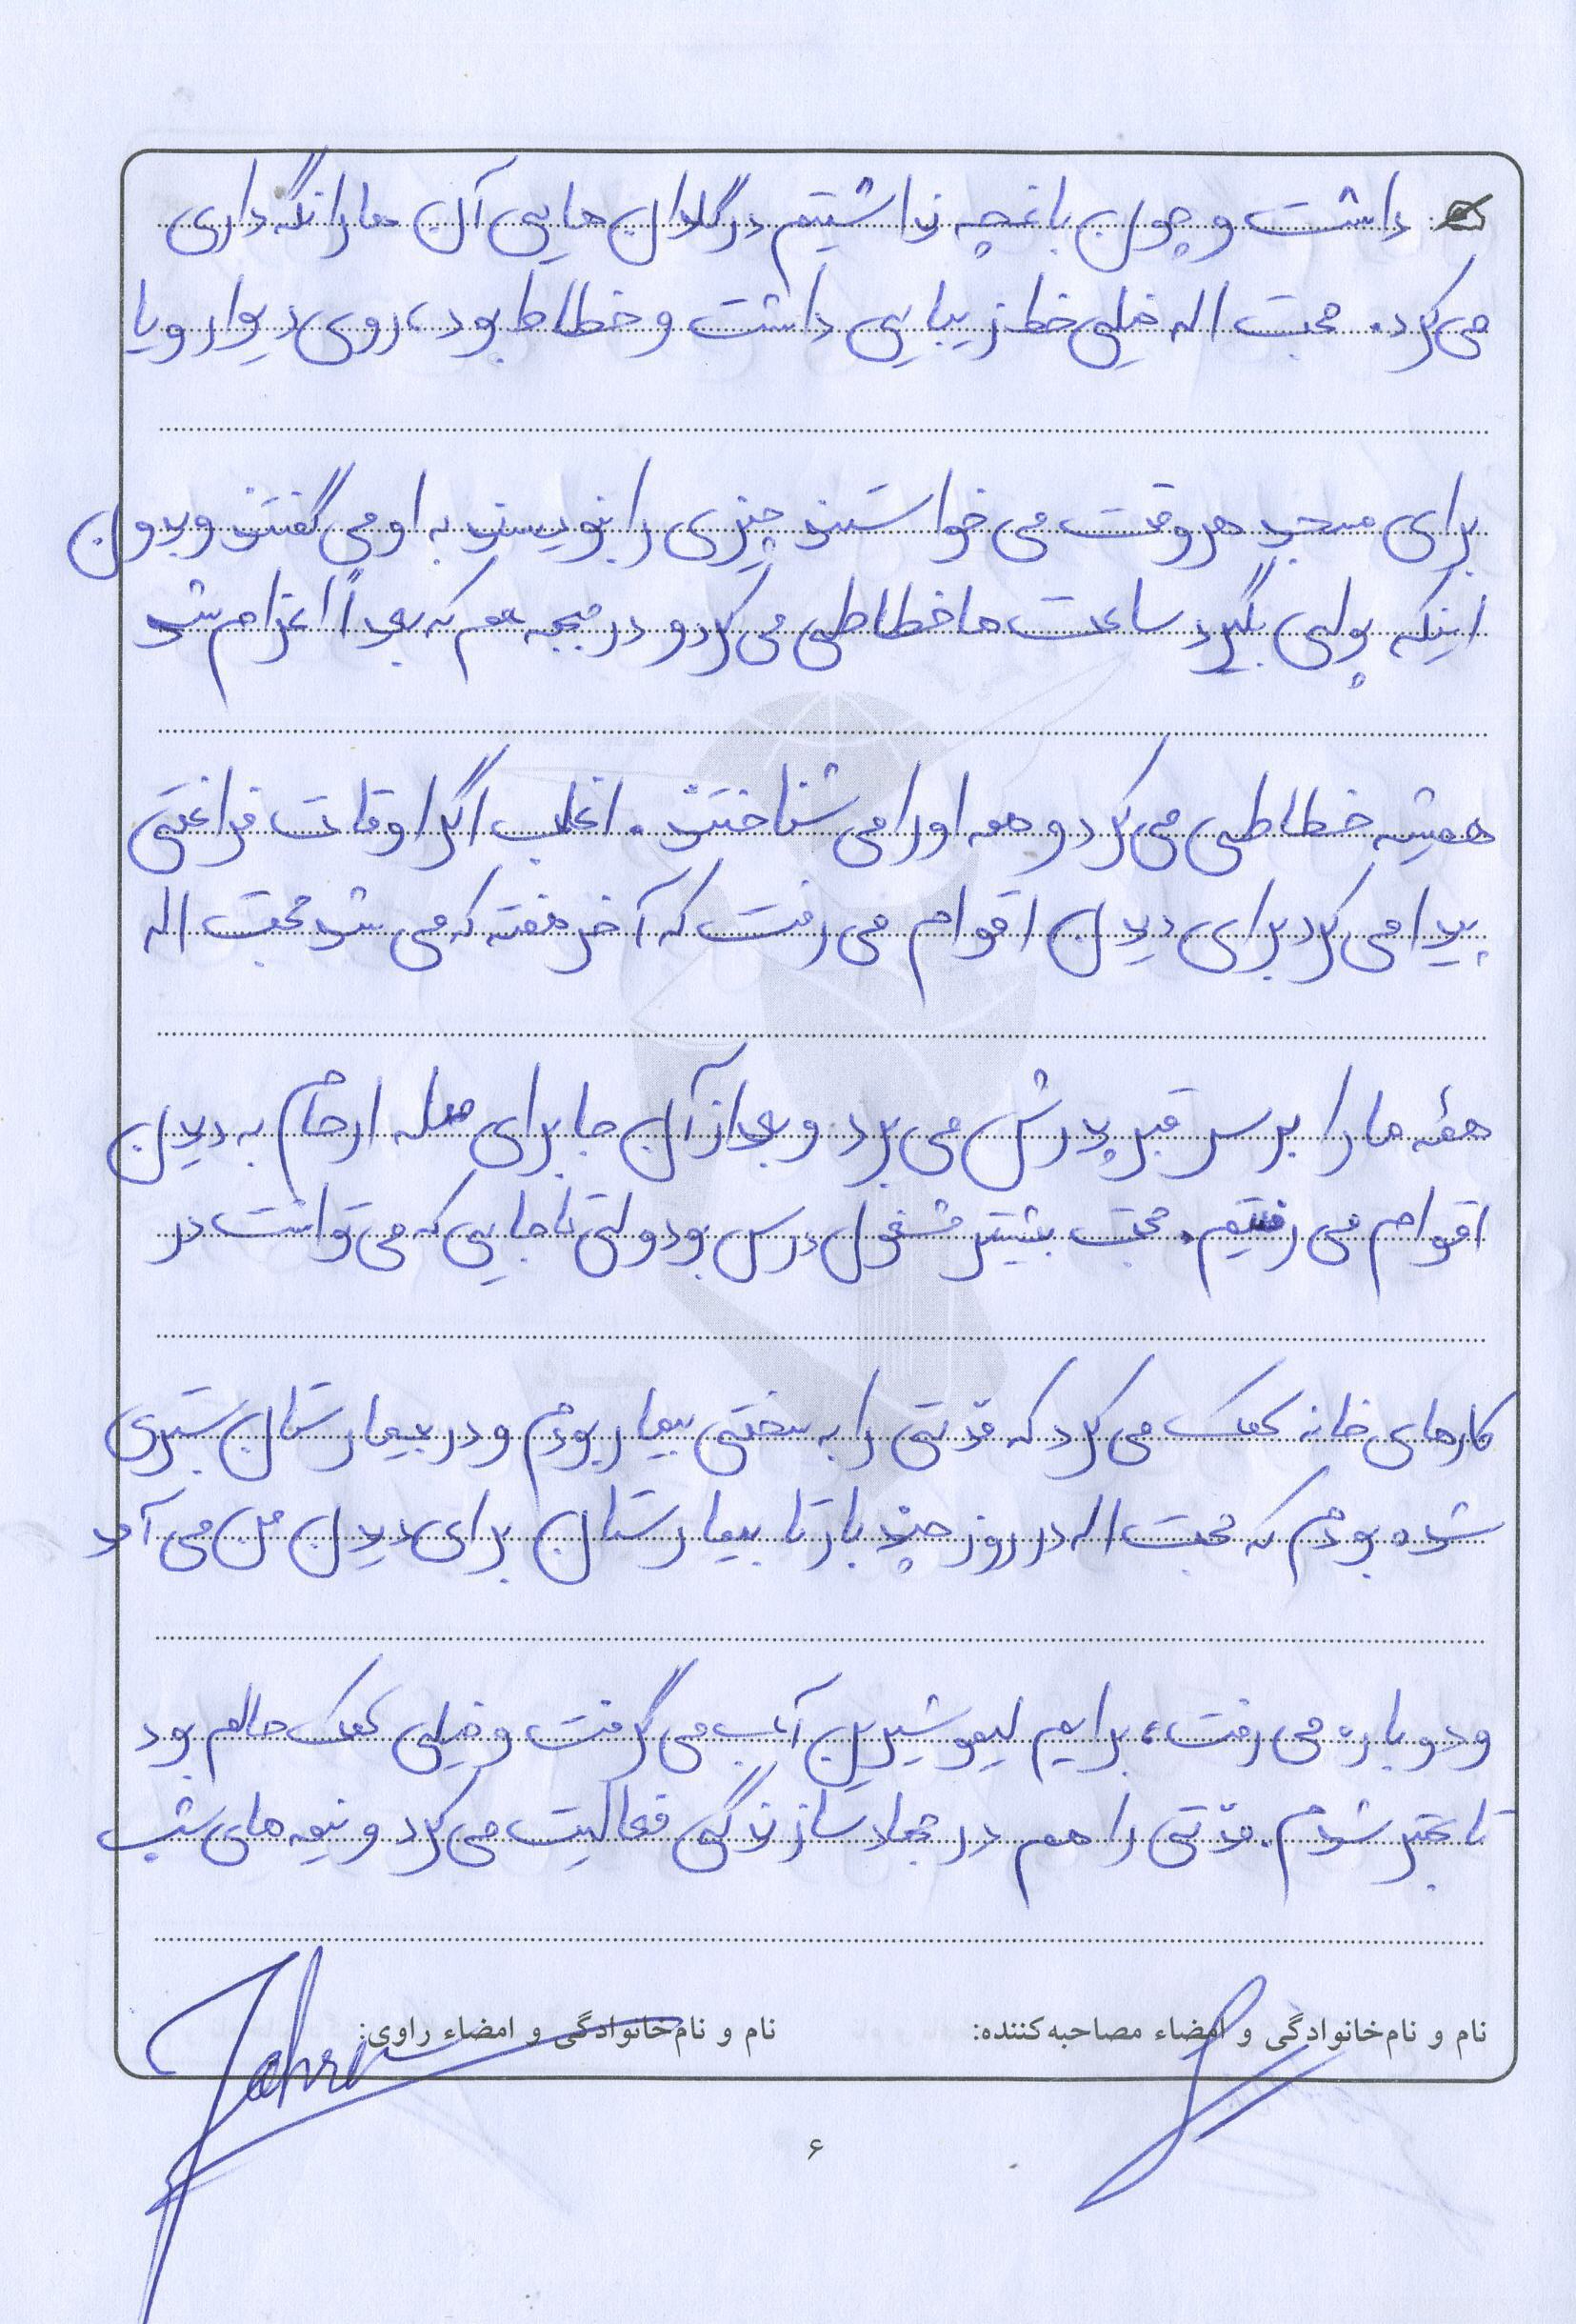 داشت و چون باغچه نداشتیم در گلدان هایی آن ها را نگه داری
می کرد. محبت اله خیلی خط زیبایی داشت و خطاط بود، روی دیوار و یا
برای مسجد هر وقت می خواستند چیزی را بنویسند به او می گفتند و بدون
اینکه پولی بگیرد ساعت ها خطاطی می کرد و در جبهه هم که بعداً اعزام شد
همیشه خطاطی می کرد و همه او را می شناختند. اغلب اگر اوقات فراغتی
پیدا می کرد برای دیدن اقوام می رفت که آخر هفته که می شد محبت اله
همهٔ ما را بر سر قبر پدرش می برد و بعد از آن جا برای صله ارحام به دیدن
اقوام می رفتیم. محبت بیشتر مشغول درس بود ولی تا جایی که می توانست در
کارهای خانه کمک می کرد که مدّتی را به سختی بیمار بودم و در بیمارستان بستری
شده بودم که محبت اله در روز چند بار تا بیمارستان برای دیدن من می آمد
و دوباره می رفت، برایم لیمو شیرین آب می گرفت و خیلی کمک حالم بود
تا بهتر شدم. مدّتی را هم در جهاد سازندگی فعالیت می کرد و نیمه های شب
نام و نام‌خانوادگی و امضاء مصاحبه‌کننده:
نام و نام‌خانوادگی و امضاء راوی:
Zahra
۶